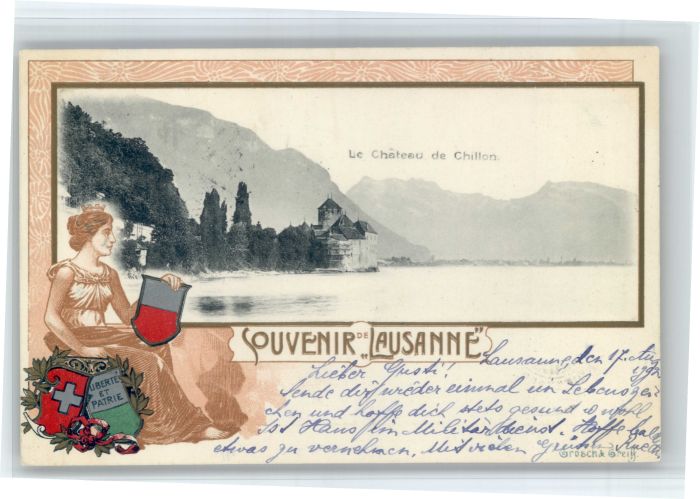 Le Château de Chillon.
SOUVENIR DE "LAUSANNE"
LIBERTÉ
ET
PATRIE
Lausanne, den 17. Aug
Lieber Gusti!
Sende dir wieder einmal ein Lebenszei-
chen und hoffe dich stets gesund & wohl
Ist Hans im Militärdienst. Hoffe
etwas zu vernehmen. Mit vielen